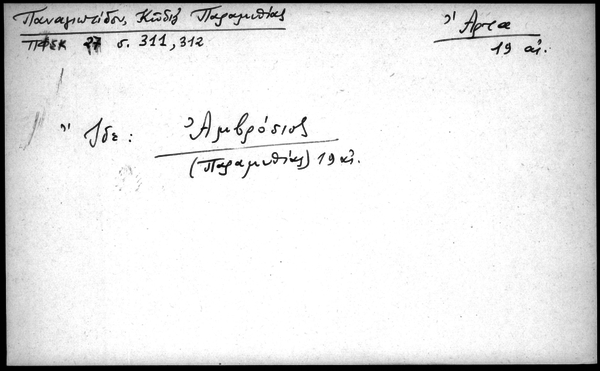 Παναγιωτίδου, Κώδιξ Παραμυθίας
ΠΦΣΚ 27 σ. 311, 312
Ἄρτα
19 αἰ.
Ἴδε: Ἀμβρόσιος
(Παραμυθίας) 19 αἰ.